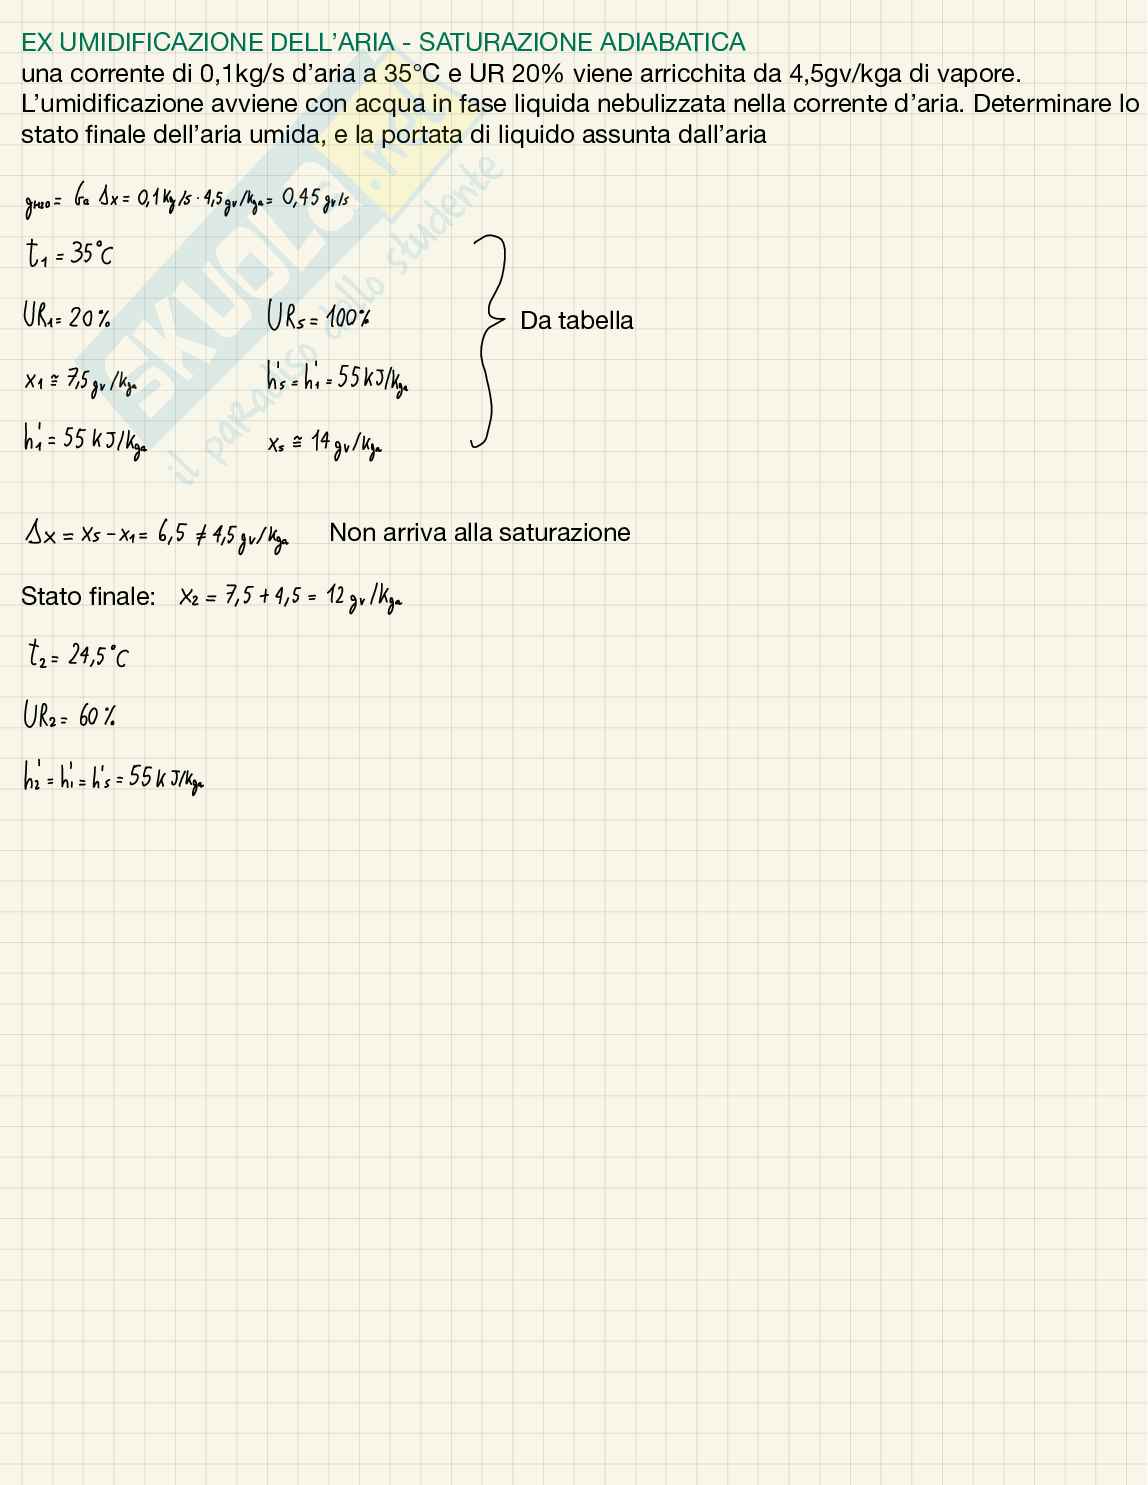 EX UMIDIFICAZIONE DELL'ARIA - SATURAZIONE ADIABATICA
una corrente di 0,1kg/s d'aria a 35°C e UR 20% viene arricchita da 4,5gv/kga di vapore.
L'umidificazione avviene con acqua in fase liquida nebulizzata nella corrente d'aria. Determinare lo
stato finale dell'aria umida, e la portata di liquido assunta dall'aria
gH2O = Ga Δx = 0,1 Kg/s · 4,5 gv/kga = 0,45 gv/s
t1 = 35°C
UR1 = 20% URs = 100%
Da tabella
x1 ≅ 7,5 gv/kga h's = h'1 = 55 kJ/kga
h'1 = 55 kJ/kga xs ≅ 14 gv/kga
Δx = xs - x1 = 6,5 ≠ 4,5 gv/kga Non arriva alla saturazione
Stato finale: x2 = 7,5 + 4,5 = 12 gv/kga
t2 = 24,5°C
UR2 = 60%
h'2 = h'1 = h's = 55 kJ/kga
SKUOLA.net
il paradiso dello studente